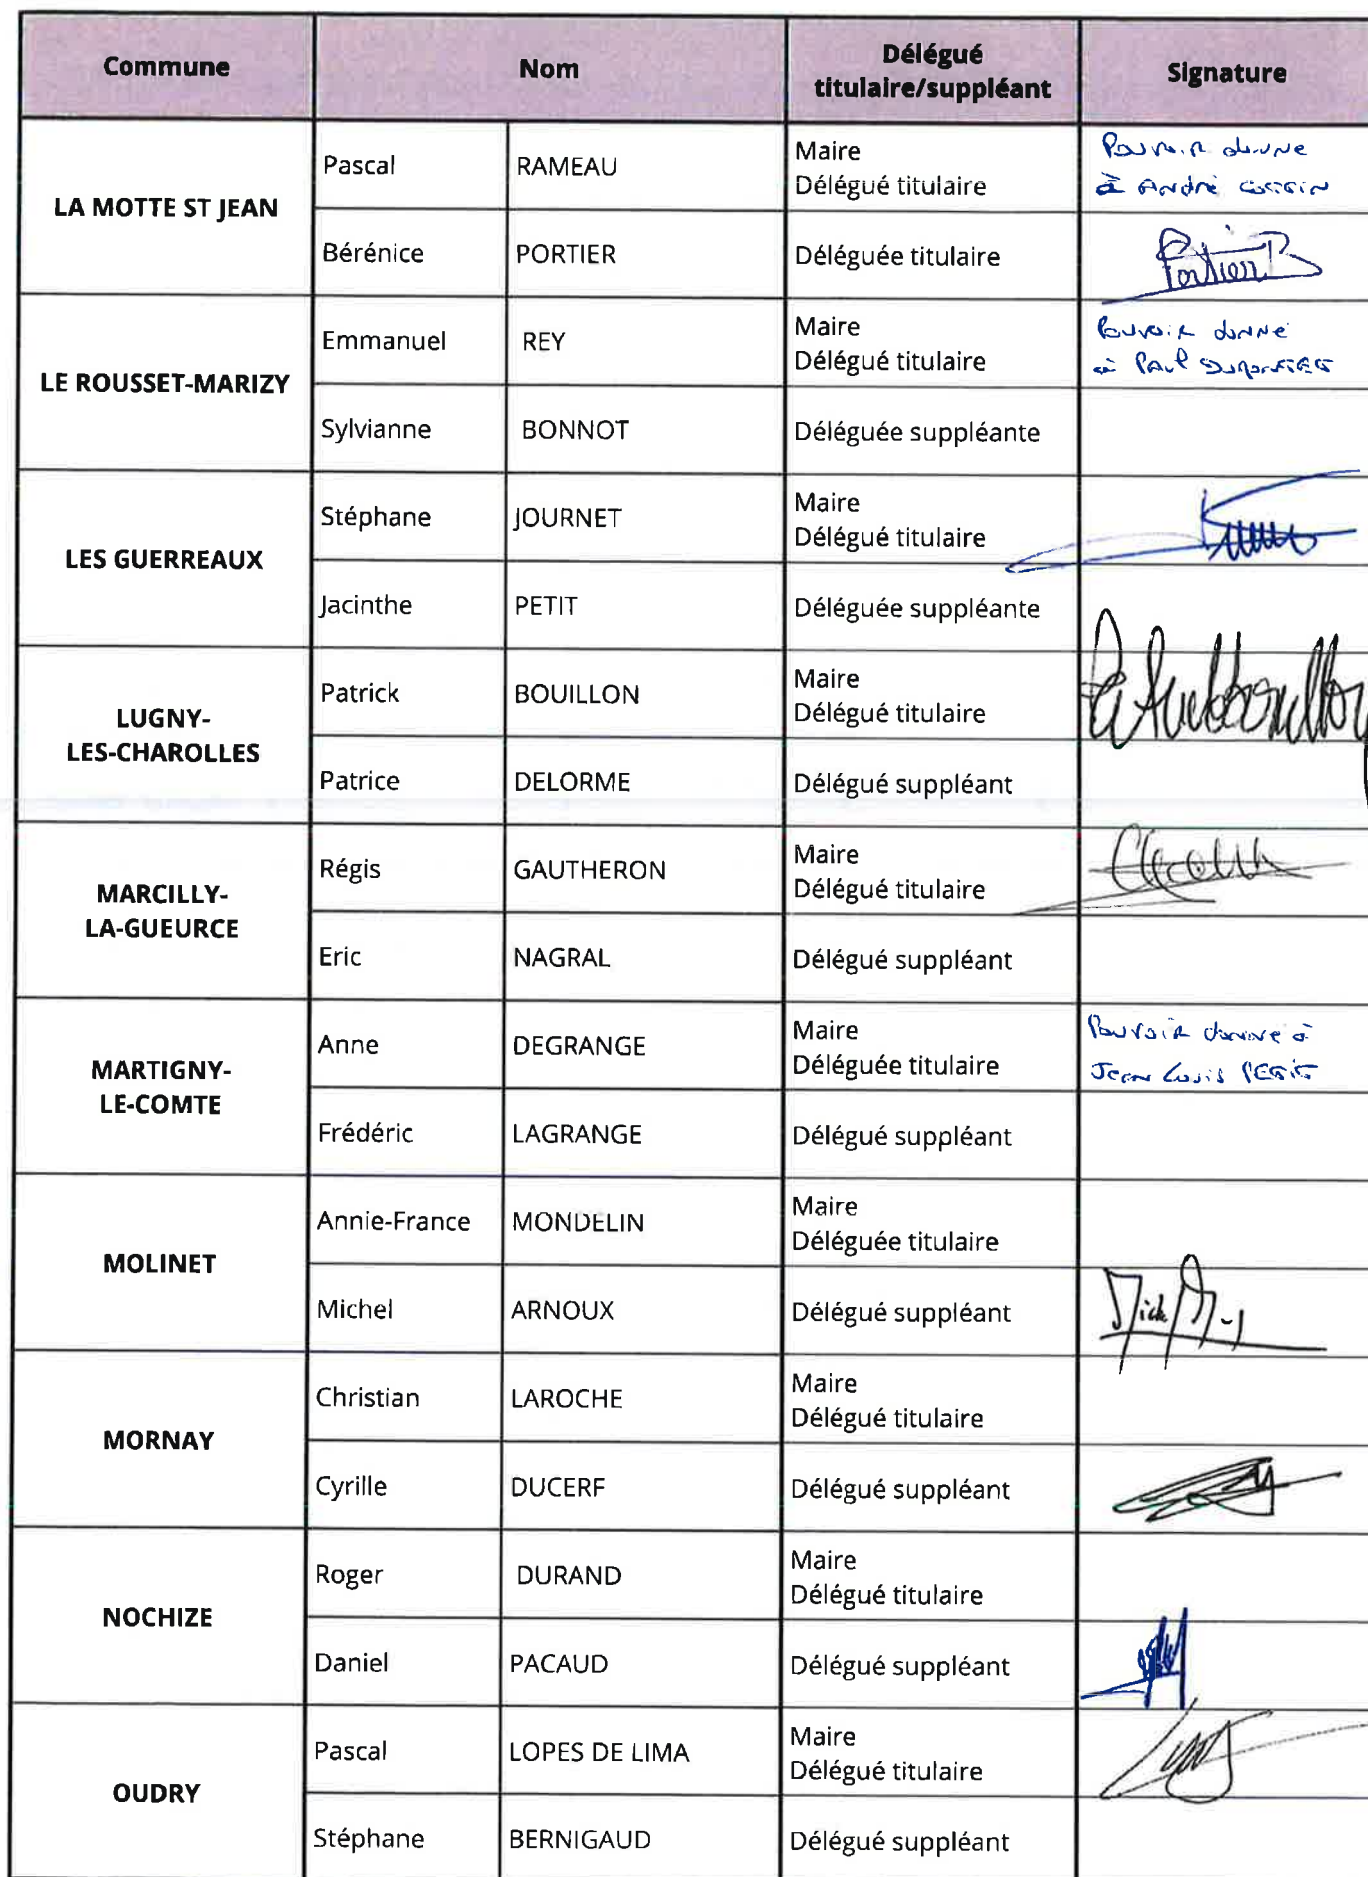 Commune Nom Délégué titulaire/suppléant Signature
LA MOTTE ST JEAN
Pascal RAMEAU Maire
Délégué titulaire
Pouvoir donne
à André
Bérénice PORTIER Déléguée titulaire
Portier B
LE ROUSSET-MARIZY
Emmanuel REY Maire
Délégué titulaire
Pouvoir donné
à Paul
Sylvianne BONNOT Déléguée suppléante
LES GUERREAUX
Stéphane JOURNET Maire
Délégué titulaire
Jacinthe PETIT Déléguée suppléante
LUGNY-
LES-CHAROLLES
Patrick BOUILLON Maire
Délégué titulaire
Patrice DELORME Délégué suppléant
MARCILLY-
LA-GUEURCE
Régis GAUTHERON Maire
Délégué titulaire
Eric NAGRAL Délégué suppléant
MARTIGNY-
LE-COMTE
Anne DEGRANGE Maire
Déléguée titulaire
Pouvoir donné à
Jean Louis PETIT
Frédéric LAGRANGE Délégué suppléant
MOLINET
Annie-France MONDELIN Maire
Déléguée titulaire
Michel ARNOUX Délégué suppléant
MORNAY
Christian LAROCHE Maire
Délégué titulaire
Cyrille DUCERF Délégué suppléant
NOCHIZE
Roger DURAND Maire
Délégué titulaire
Daniel PACAUD Délégué suppléant
OUDRY
Pascal LOPES DE LIMA Maire
Délégué titulaire
Stéphane BERNIGAUD Délégué suppléant